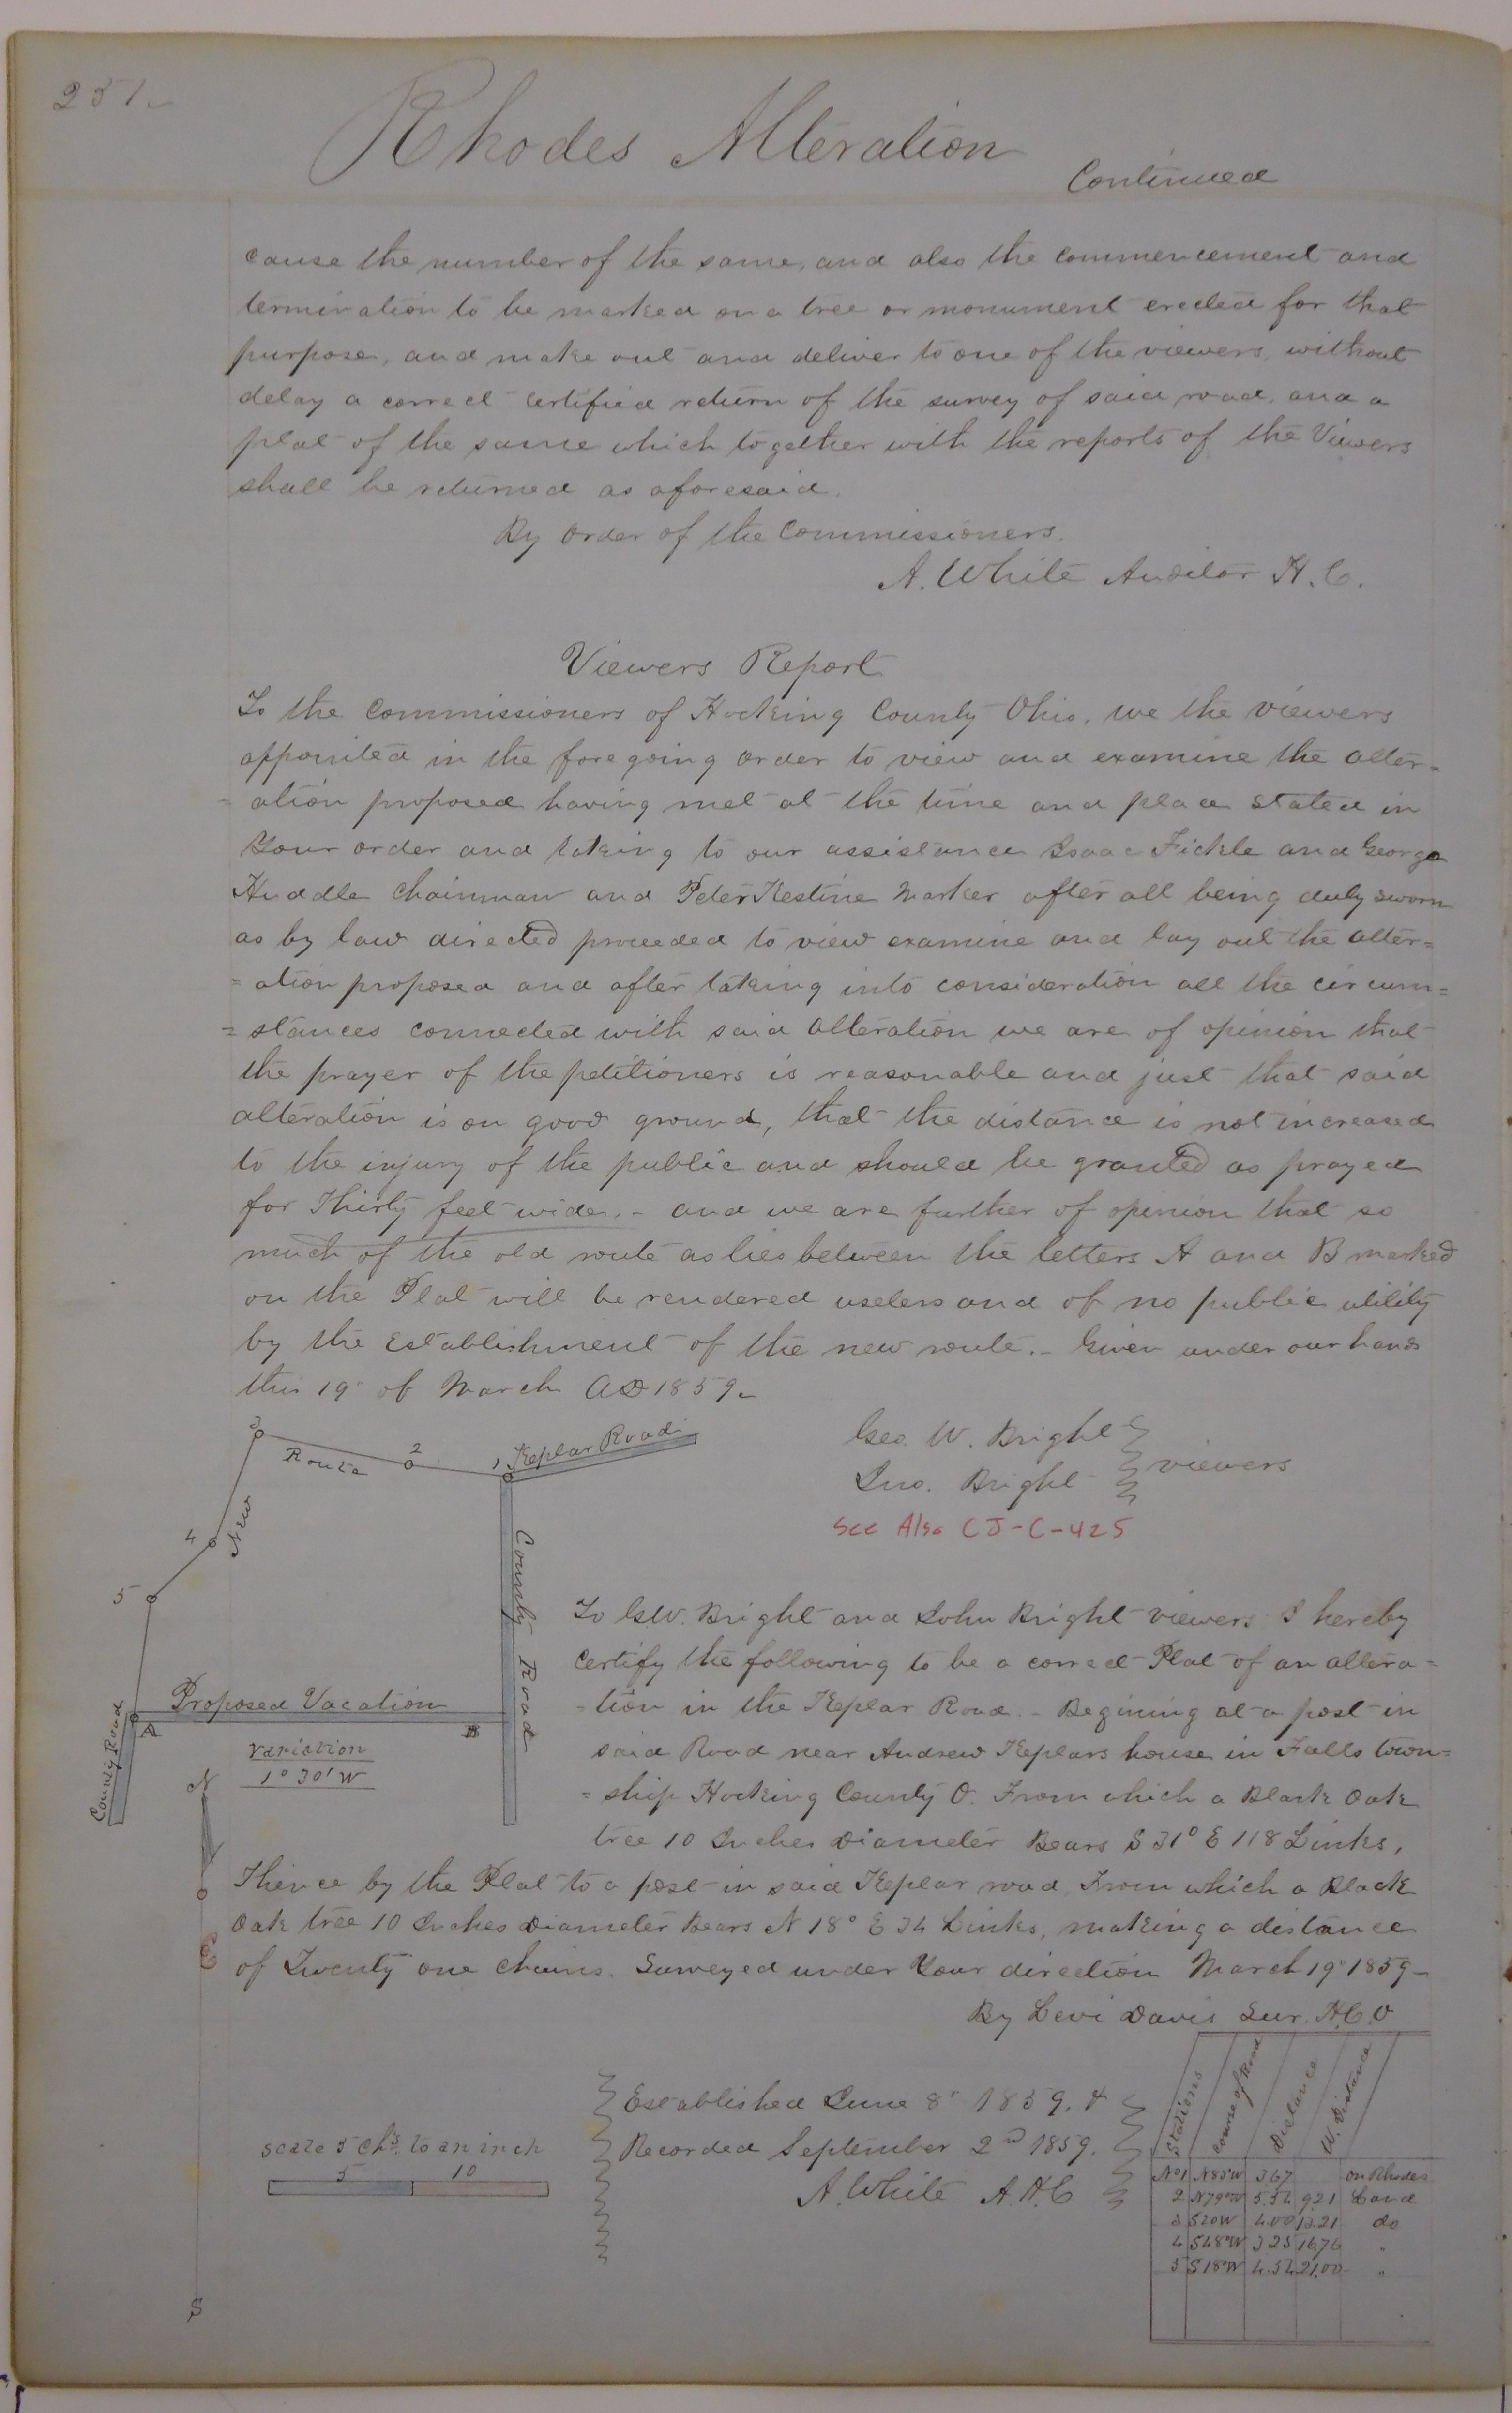 251
Rhodes Alteration
Continued
cause the number of the same, and also the commencement and
termination to be marked on a tree or monument erected for that
purpose, and make out and deliver to one of the viewers, without
delay a correct certified return of the survey of said road, and a
plat of the same which together with the reports of the Viewers
shall be returned as aforesaid.
By order of the Commissioners.
A. White Auditor H. C.
Viewers Report
To the Commissioners of Hocking County Ohio, we the viewers
appointed in the foregoing order to view and examine the alter=
= ation proposed having met at the time and place stated in
Your order and taking to our assistance Isaac Fickle and George
Huddle Chainman and Peter Kestine Marker after all being duly sworn
as by law directed proceeded to view examine and lay out the alter=
= ation proposed and after taking into consideration all the circum=
= stances connected with said alteration we are of opinion that
the prayer of the petitioners is reasonable and just that said
alteration is on good ground, that the distance is not increased
to the injury of the public and should be granted as prayed
for Thirty feet wide. - and we are further of opinion that so
much of the old route as lies between the letters A and B marked
on the Plat will be rendered useless and of no public utility
by the establishment of the new route. - Given under our hands
this 19" of March AD 1859
Geo. W. Bright
Jno. Bright
viewers
See Also CJ-C-425
3
Route
2
1
Keplar Road
4
New
5
County Road
Proposed Vacation
A
B
County Road
variation
1° 30' W
N
To G.W. Bright and John Bright viewers I hereby
certify the following to be a correct Plat of an altera=
= tion in the Keplar Road. - Begining at a post in
said Road near Andrew Keplars house in Falls town=
= ship Hocking County O. From which a Black Oak
tree 10 Inches Diameter Bears S 31° E 118 Links,
Thence by the Plat to a post in said Keplar road, From which a Black
Oak tree 10 Inches Diameter Bears N 18° E 34 Links, making a distance
of Twenty one Chains. Surveyed under Your direction March 19" 1859
By Levi Davis Sur. H.C.O
E
S
scale 5 chs. to an inch
5 10
Established June 8" 1859. &
Recorded September 2nd 1859.
A. White A.H.C
Stations Course of Road Distance W. Distance
No1 N85°W 3.67 on Rhodes
2 N79°W 5.54 9.21 Land
3 S20W 4.00 13.21 do
4 S48°W 3.25 16.76 "
5 S18°W 4.54 21.00 "